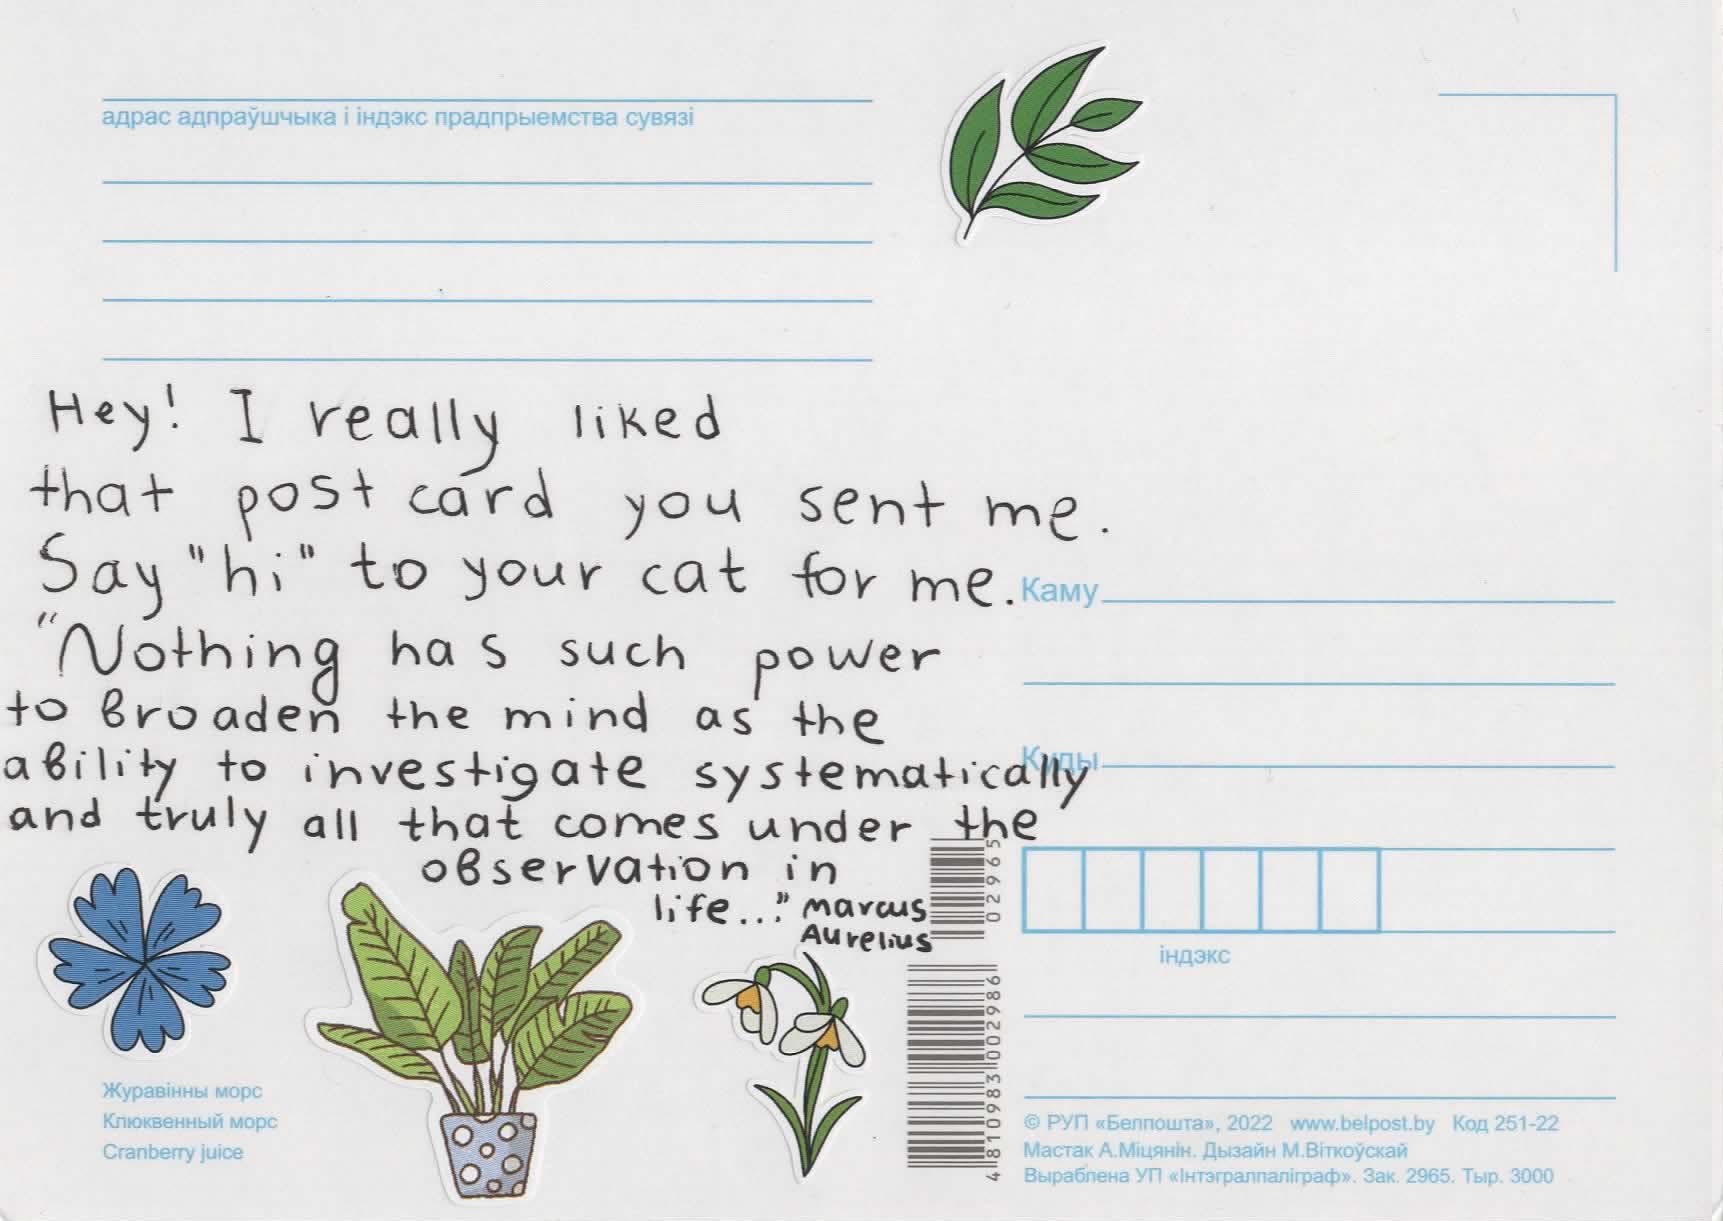 адрас адпраўшчыка і індэкс прадпрыемства сувязі
Hey! I really liked
that post card you sent me.
Say "hi" to your cat for me.
"Nothing has such power
to broaden the mind as the
ability to investigate systematically
and truly all that comes under the
observation in
life..." Marcus
Aurelius
Каму
Куды
02965
4810983002986
індэкс
Журавінны морс
Клюквенный морс
Cranberry juice
© РУП «Белпошта», 2022 www.belpost.by Код 251-22
Мастак А.Міцянін. Дызайн М.Віткоўскай
Выраблена УП «Інтэгралпаліграф». Зак. 2965. Тыр. 3000